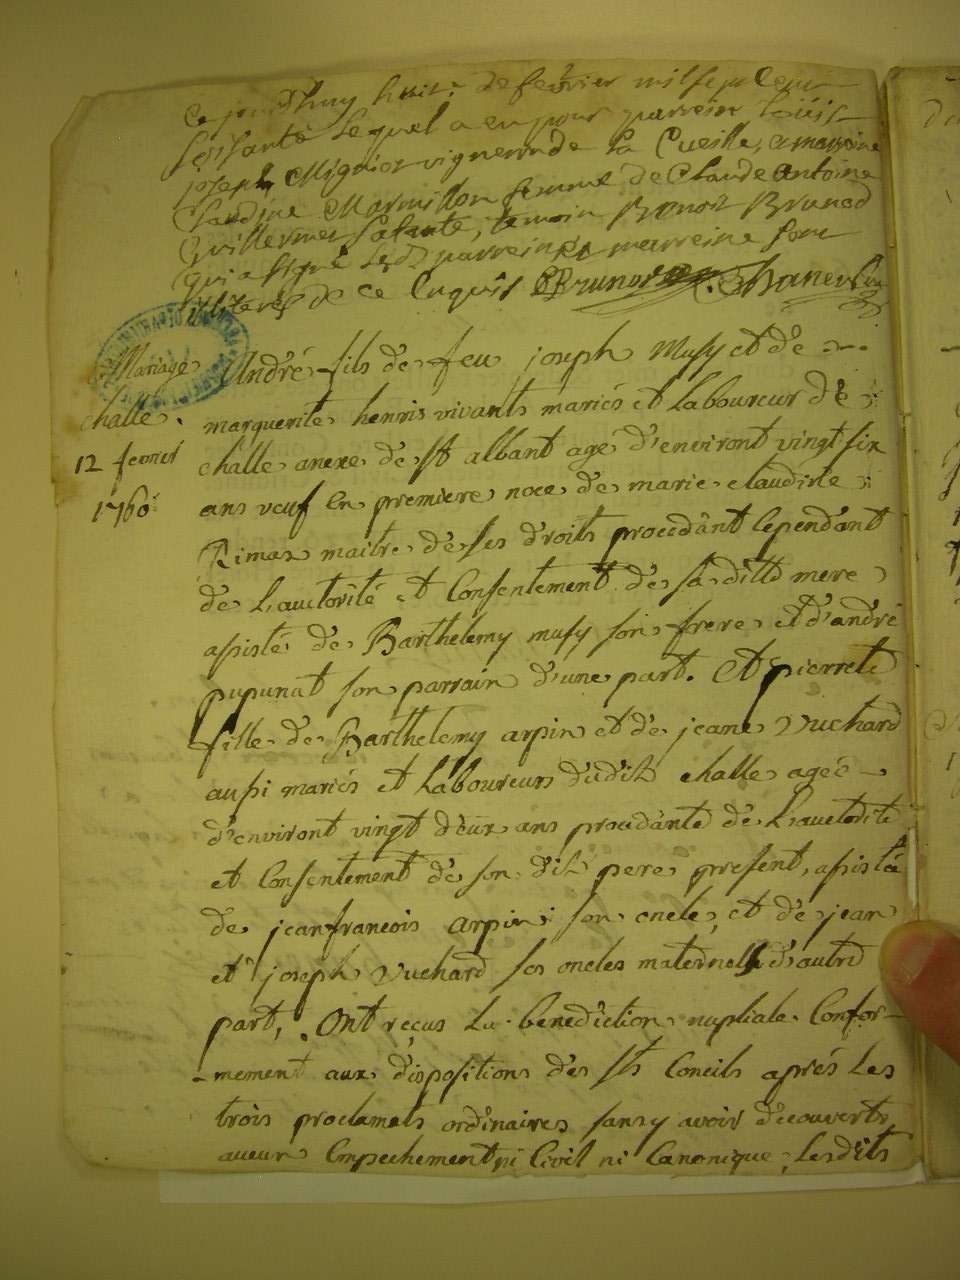 ce jourdhuy huit de février mil sept cent
soissante lequel a eu pour parrein Loüis
joseph Migniot vigneron de la Cueille, et marreine
Claudine Marmillon femme de Claude Antoine
Guillermet sa tante, temoin Benoit Brunod
qui a signé lesd parrein et marreine sont
illiterés de ce enquis Brunod
Mariage
challe.
12 fevrier
1760
André fils de feu joseph Musy et de
marguerite henris vivants mariés et Laboureur de
challe anexe de st albant agé d'environt vingt six
ans veuf en premiere noce de marie claudine
Rimax maitre de ses droits procedant cependant
de L'auctorité et Consentement de sa ditte mere
assisté de Barthelemy musy son frere et d'andré
pupunat son parrain d'une part. Et pierrete
fille de Barthelemy arpin et de jeane Vuchard
aussi mariés et Laboureurs dudit challe agée
d'environt vingt deux ans procedante de L'auctorite
et Consentement de son dit pere present, assistée
de jeanfrancois arpin son oncle, et de jean
et joseph Vuchard ses oncles maternels d'autre
part, Ont reçus La benediction nuptiale Confor-
-mement aux dispositions des sts Concils après Les
trois proclamats ordinaires sans y avoir decouverts
aucun Empechement ni Civil ni Canonique, Lesdits